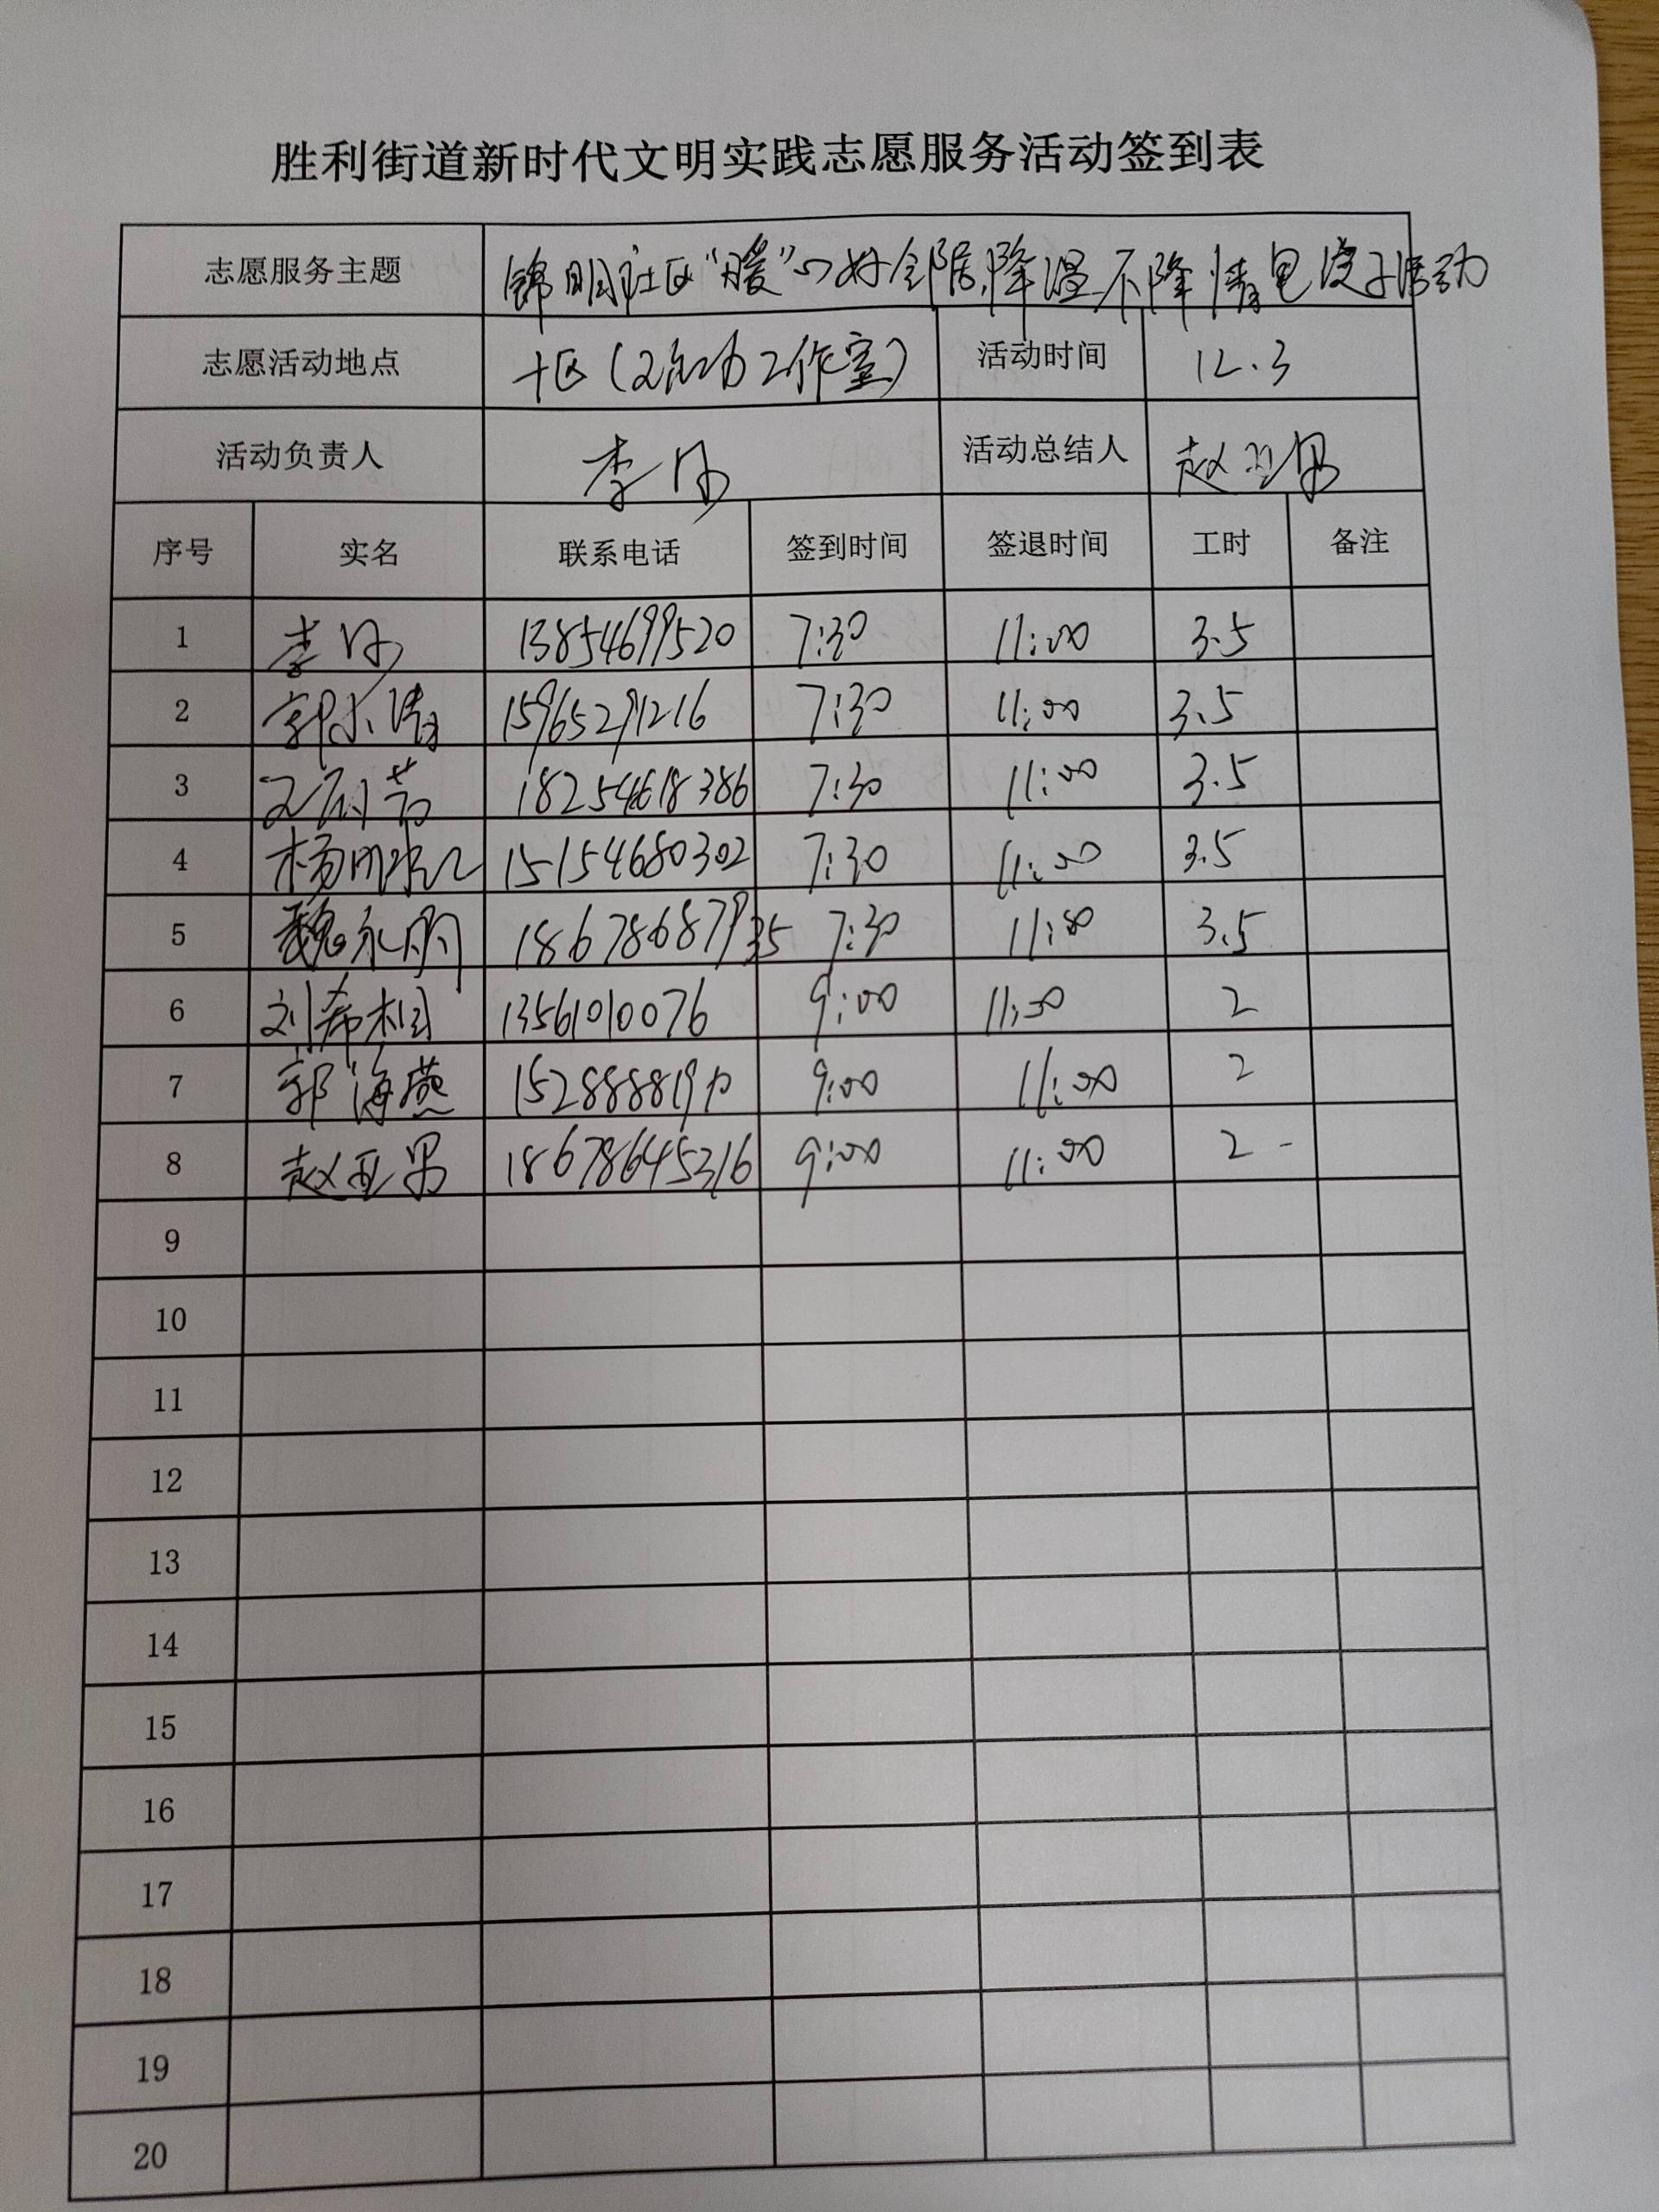 胜利街道新时代文明实践志愿服务活动签到表
志愿服务主题 锦明社区"暖"心好邻居,降温不降情包饺子活动
志愿活动地点 十区(工作室) 活动时间 12.3
活动负责人 李 活动总结人 赵亚男
序号 实名 联系电话 签到时间 签退时间 工时 备注
1 李 13854699520 7:30 11:00 3.5
2 郭小清 15965291216 7:30 11:00 3.5
3 18254618386 7:30 11:00 3.5
4 杨 15154680302 7:30 11:00 3.5
5 魏永 7:30 11:00 3.5
6 刘希 13561010076 9:00 11:00 2
7 郭海燕 9:00 11:00 2
8 赵亚男 18678645316 9:00 11:00 2
9
10
11
12
13
14
15
16
17
18
19
20